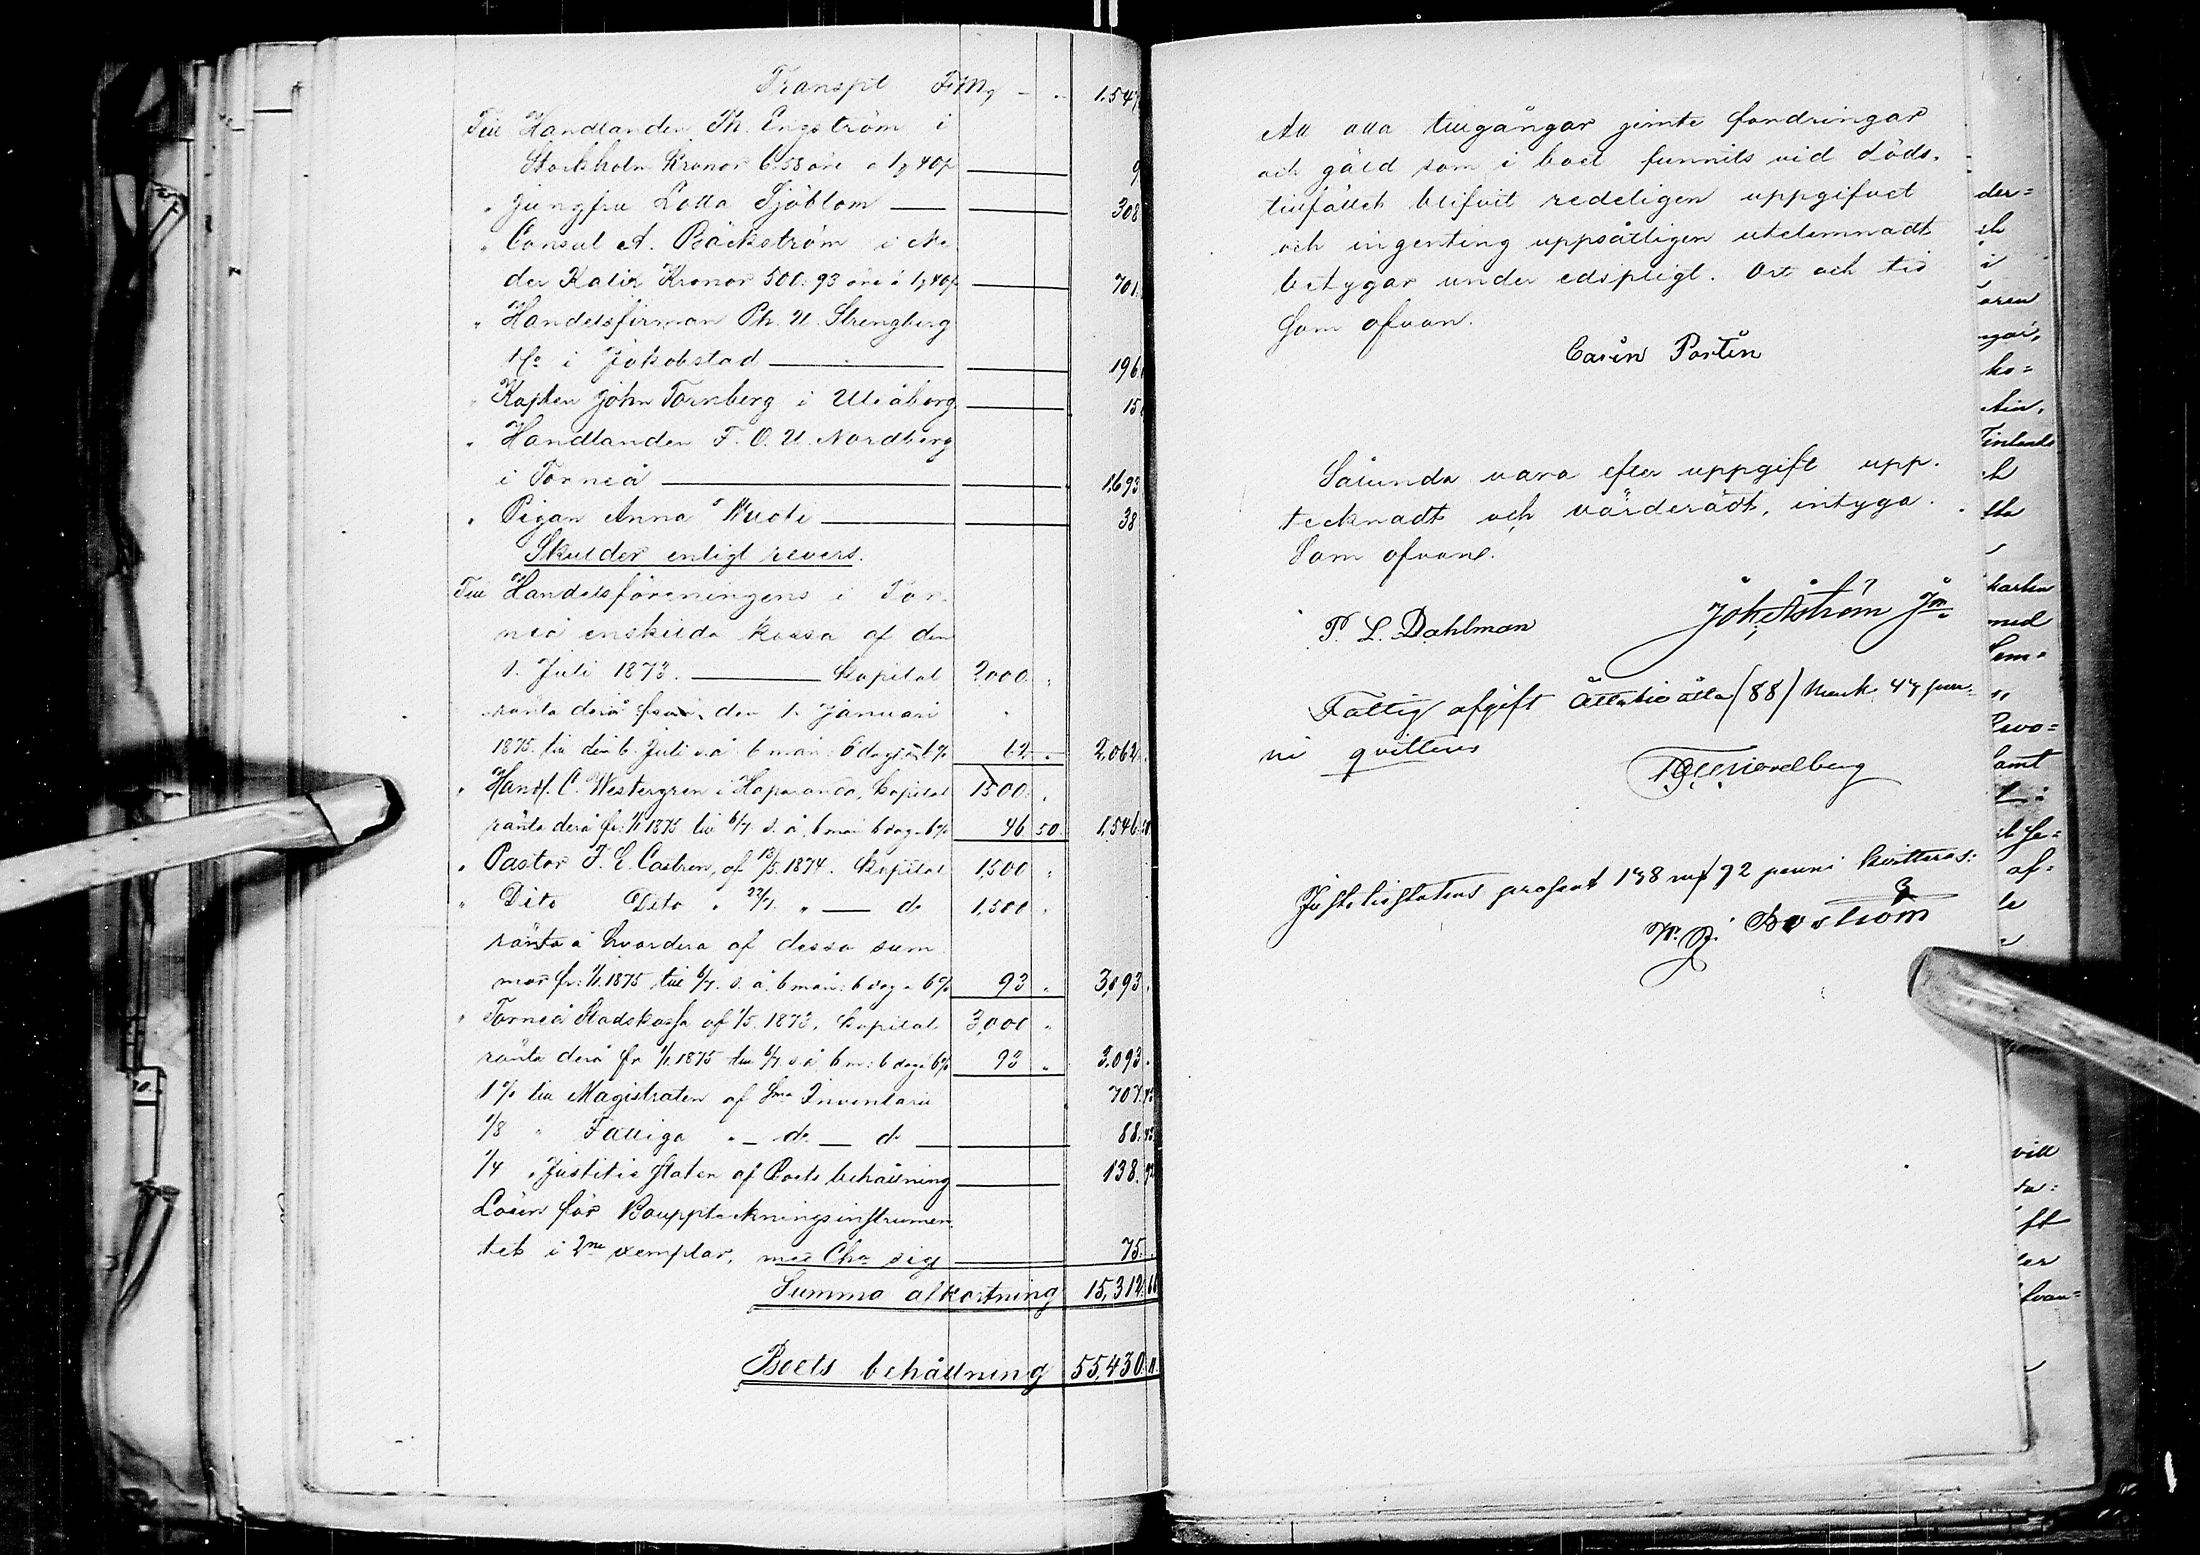 Transpt Fmg - - 1,547
Till Handlanden Th. Engström i
Stockholm Kronor 6.58 öre a 1,40p 9
" Jungfru Lotta Sjöblom 308
" Consul A. Bäckström i Ne
der Kalix Kronor 500.93 öre á 1,40p 701
" Handelsfirman Ph. U. Strengberg
& Co i Jakobstad 196
" Kapten John Tornberg i Uleåborg 15
" Handlanden F. O. U. Nordberg
i Torneå 1,693
" Pigan Anna Wuoti 38
Skulder enligt revers.
Till Handelsföreningens i Tor-
neå enskilda kassa af den
1. Juli 1873. Kapital 2000 "
ränta derå från den 1. Januari
1875 till den 6. Juli s. å. 6 mån: 6 dag: a 6% 62 - 2,062.
" Handl. C. Westergren i Haparanda, Kapital 1500 "
ränta derå fr: 1/1 1875 till 6/7 s. å. 6 mån 6 dag a 6% 46 50. 1,546.50
" Pastor F. E. Castren, af 13/5 1874. Kapital 1,500 "
" Dito Dito " 22/7 " — do 1,500 "
ränta å hvardera af dessa sum
mor fr: 1/1 1875 till 6/7. s. å. 6 mån: 6 dag a 6% 93 " 3,093.
" Torneå Stadskassa af 1/5. 1873. Kapital 3,000 "
ränta derå fr 1/1 1875 till 6/7 s å 6 m: 6 dag a 6% 93 " 3,093.
1% till Magistraten af Sma Inventarii 707.
1/8 " Fattiga " - do - do 88.
1/4 " Justitie Staten af Boets behållning 138.92
Lösen för Bouppteckningsinstrumen-
tet i 2ne exemplar, med Cha sig 75.
Summa afkortning 15,312.
Boets behållning 55,430.
Att alla tillgångar jemte fordringar
och gäld som i boet funnits vid döds-
tillfället blifvit redeligen uppgifvet
och ingenting uppsåtligen utelemnadt
betygar under edspligt. Ort och tid
Som ofvan.
Carin Portin
Sålunda vara efter uppgift upp-
tecknadt och värderadt, intyga.
Som ofvan.
P. L. Dahlman Joh. Åström Jon
Fattig afgift Åttatio åtta (88) Mark 43 pen-
ni qvitteras
F O U Nordberg
Justitiestatens prosent 138 mk 92 penni kvitteras:
W. J. Boström
der=
ho=
Finlands
med
Sem=
Samt
af=
vill